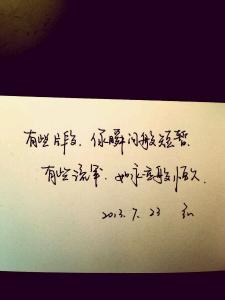 有些片段,像瞬间般短暂.
有些流年,如永远般恒久.
2013.7.23